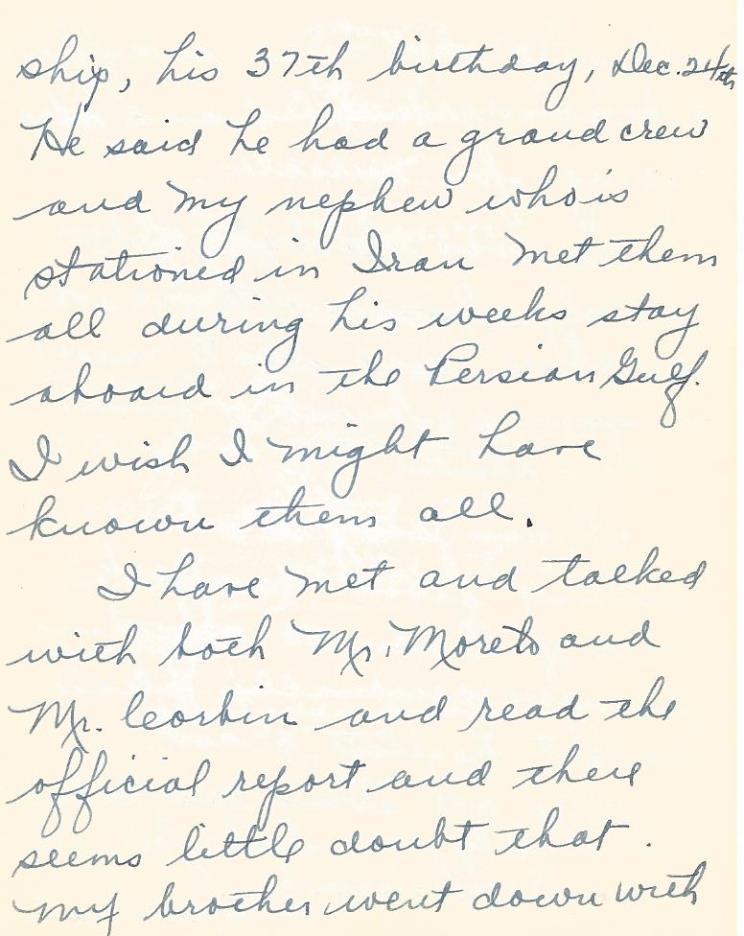 ship, his 37th birthday, Dec. 24th
He said he had a grand crew
and my nephew who is
stationed in Iran met them
all during his weeks stay
aboard in the Persian Gulf.
I wish I might have
known them all.
I have met and talked
with both Mr. Moreto and
Mr. and read the
official report and there
seems little doubt that.
my brother went down with